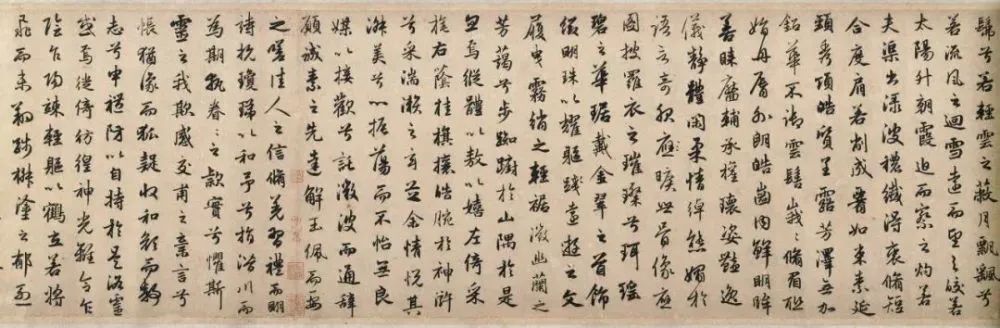 髴兮若輕雲之蔽月飄飄兮
若流風之迴雪遠而望之皎若
太陽升朝霞迫而察之灼若
夫渠出淥波穠纖得衷脩短
合度肩若削成腰如束素延
頸秀項皓質呈露芳澤無加
鉛華不御雲髻峩〻脩眉聯
娟丹脣外朗皓齒内鮮明眸
善睞靨輔承權瓌姿豔逸
儀靜體閑柔情綽態媚於
語言奇服應曠世骨像應
圖披羅衣之璀璨兮珥瑤
碧之華琚戴金翠之首飾
綴明珠以耀軀踐遠遊之文
履曳霧綃之輕裾微幽蘭之
芳藹兮步踟躕於山隅於是
忽焉縱體以敖以嬉左倚采
旄右蔭桂旗攘皓腕於神滸
兮采湍瀨之玄芝余情悅其
淑美兮心振蕩而不怡無良
媒以接歡兮託微波而通辭
願誠素之先達解玉佩而要
之嗟佳人之信脩羌習禮而明
詩抗瓊珶以和予兮指潛川而
為期執眷〻之款實兮懼斯
靈之我欺感交甫之棄言兮
悵猶豫而狐疑收和顏而靜
志兮申禮防以自持於是洛靈
感焉徙倚彷徨神光離合乍
陰乍陽竦輕軀以鶴立若將
飛而未翔踐椒塗之郁烈